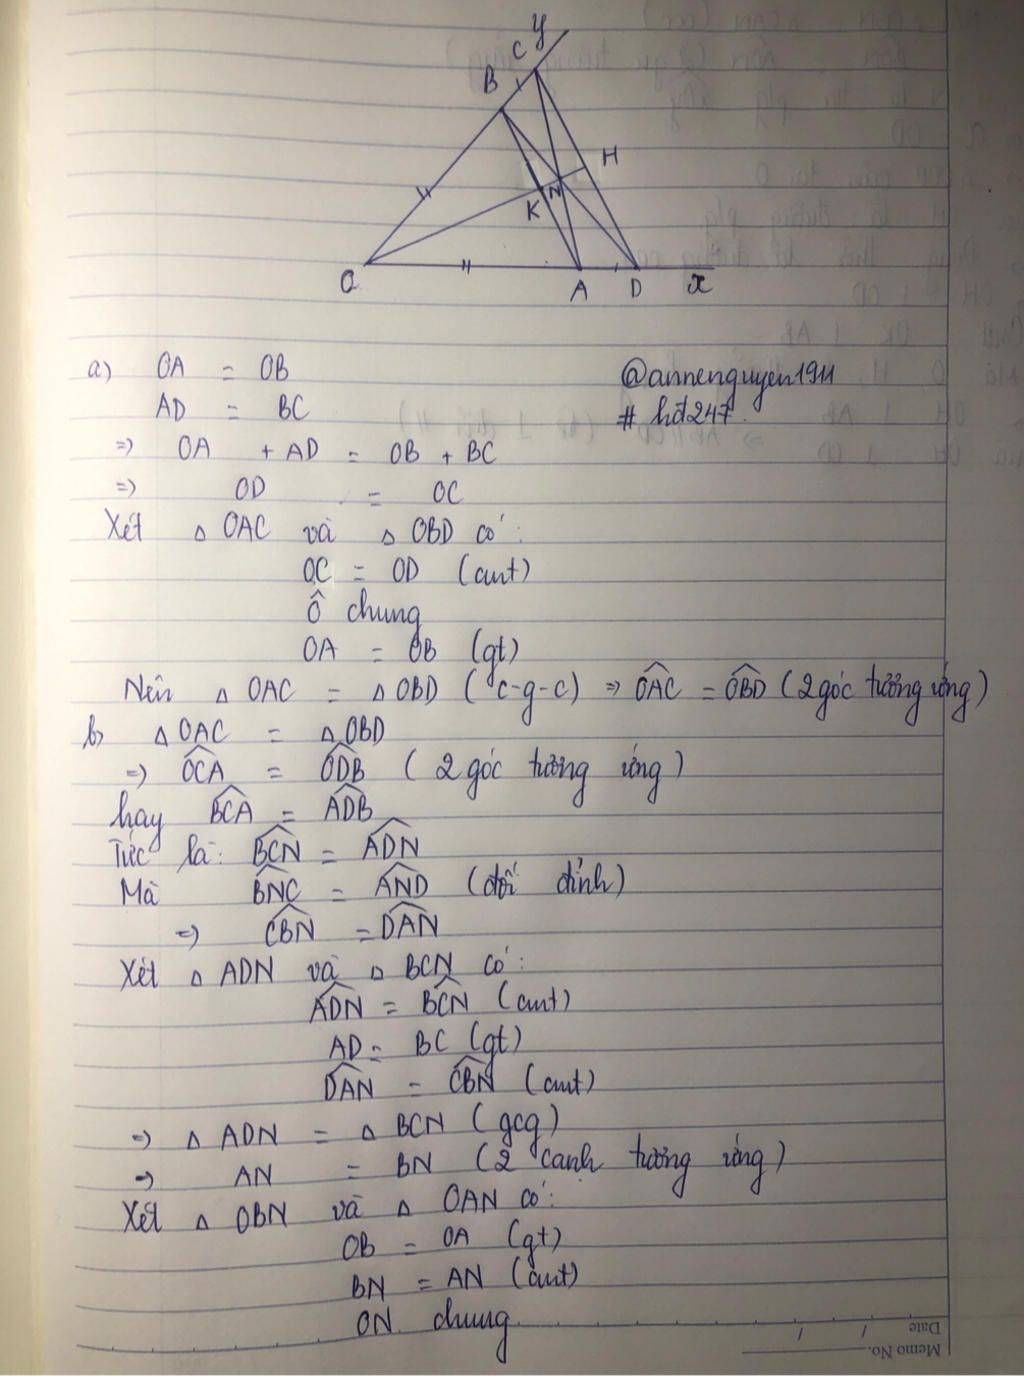 y
C
B
H
K
N
O
A
D
x
a) OA = OB
@annenguyen1911
AD = BC
# hđ247.
=> OA + AD = OB + BC
=> OD = OC
Xét Δ OAC và Δ OBD có:
OC = OD (cmt)
Ô chung
OA = OB (gt)
Nên Δ OAC = Δ OBD (c-g-c) => OAC = OBD (2 góc tương ứng)
b) Δ OAC = Δ OBD
=> OCA = ODB (2 góc tương ứng)
hay BCA = ADB
Tức là: BCN = ADN
Mà BNC = AND (đối đỉnh)
=> CBN = DAN
Xét Δ ADN và Δ BCN có:
ADN = BCN (cmt)
AD = BC (gt)
DAN = CBN (cmt)
=> Δ ADN = Δ BCN (gcg)
=> AN = BN (2 cạnh tương ứng)
Xét Δ OBN và Δ OAN có:
OB = OA (gt)
BN = AN (cmt)
ON chung
Date / /
Memo No.